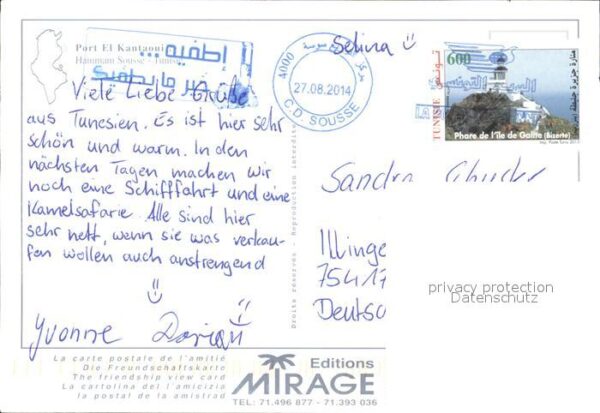 Port El Kantaoui
Hammam Sousse - Tunisie
إطفيه...
خير ما يطفيك
Viele Liebe Grüße
aus Tunesien. Es ist hier sehr
schön und warm. In den
nächsten Tagen machen wir
noch eine Schifffahrt und eine
Kamelsafarie. Alle sind hier
sehr nett, wenn sie was verkau-
fen wollen auch anstrengend
Yvonne Dorian
Selina
4000
27.08.2014
C D SOUSSE
600
TUNISIE
تونس
البريد التونسي
Phare de l'île de Galite (Bizerte)
Sandra
Illinge
75417
Deutsc
privacy protection
Datenschutz
Droits réservés - Reproduction interdite
La carte postale de l'amitié
Die Freundschaftskarte
The friendship view card
La cartolina dell'amicizia
la postal de la amistrad
Editions
MIRAGE
TEL: 71.496 877 - 71.393 036